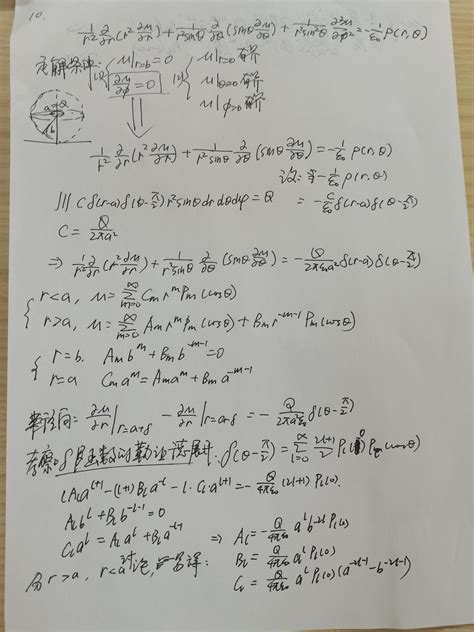 10.
1/r² ∂/∂r(r² ∂u/∂r) + 1/(r² sinθ) ∂/∂θ(sinθ ∂u/∂θ) + 1/(r² sin²θ) ∂²u/∂φ² = -1/ε₀ ρ(r,θ)
定解条件: { u|r=b = 0 { u|r=0 有界
∂u/∂φ = 0 u|θ=0 有界
u|φ=0 有界
a Q
b
1/r² ∂/∂r(r² ∂u/∂r) + 1/(r² sinθ) ∂/∂θ(sinθ ∂u/∂θ) = -1/ε₀ ρ(r,θ)
设: -1/ε₀ ρ(r,θ)
∭ C δ(r-a) δ(θ-π/2) r² sinθ dr dθ dφ = Q = -C/ε₀ δ(r-a) δ(θ-π/2)
C = Q/(2πa²)
⇒ 1/r² ∂/∂r(r² ∂u/∂r) + 1/(r² sinθ) ∂/∂θ(sinθ ∂u/∂θ) = -Q/(2πε₀a²) δ(r-a) δ(θ-π/2)
{ r<a, u = Σ(m=0→∞) Cm r^m Pm(cosθ)
r>a, u = Σ(m=0→∞) Am r^m Pm(cosθ) + Bm r^(-m-1) Pm(cosθ)
{ r=b. Am b^m + Bm b^(-m-1) = 0
r=a Cm a^m = Am a^m + Bm a^(-m-1)
∂u/∂r|r=a+δ - ∂u/∂r|r=a-δ = -Q/(2πa²ε₀) δ(θ-π/2)
考察δ函数的勒让德展开. δ(θ-π/2) = Σ(l=0→∞) (2l+1)/2 Pl(0) Pl(cosθ)
l Al a^(l+1) - (l+1) Bl a^(-l) - l·Cl a^(l+1) = -Q/(4πε₀) (2l+1) Pl(0).
Al b^l + Bl b^(-l-1) = 0
Cl a^l = Al a^l + Bl a^(-l-1)
⇒ Al = -Q/(4πε₀) a^l b^(-2l-1) Pl(0)
Bl = Q/(4πε₀) a^l Pl(0)
Cl = Q/(4πε₀) a^l Pl(0) (a^(-2l-1) - b^(-2l-1))
分 r>a, r<a 讨论, 得: